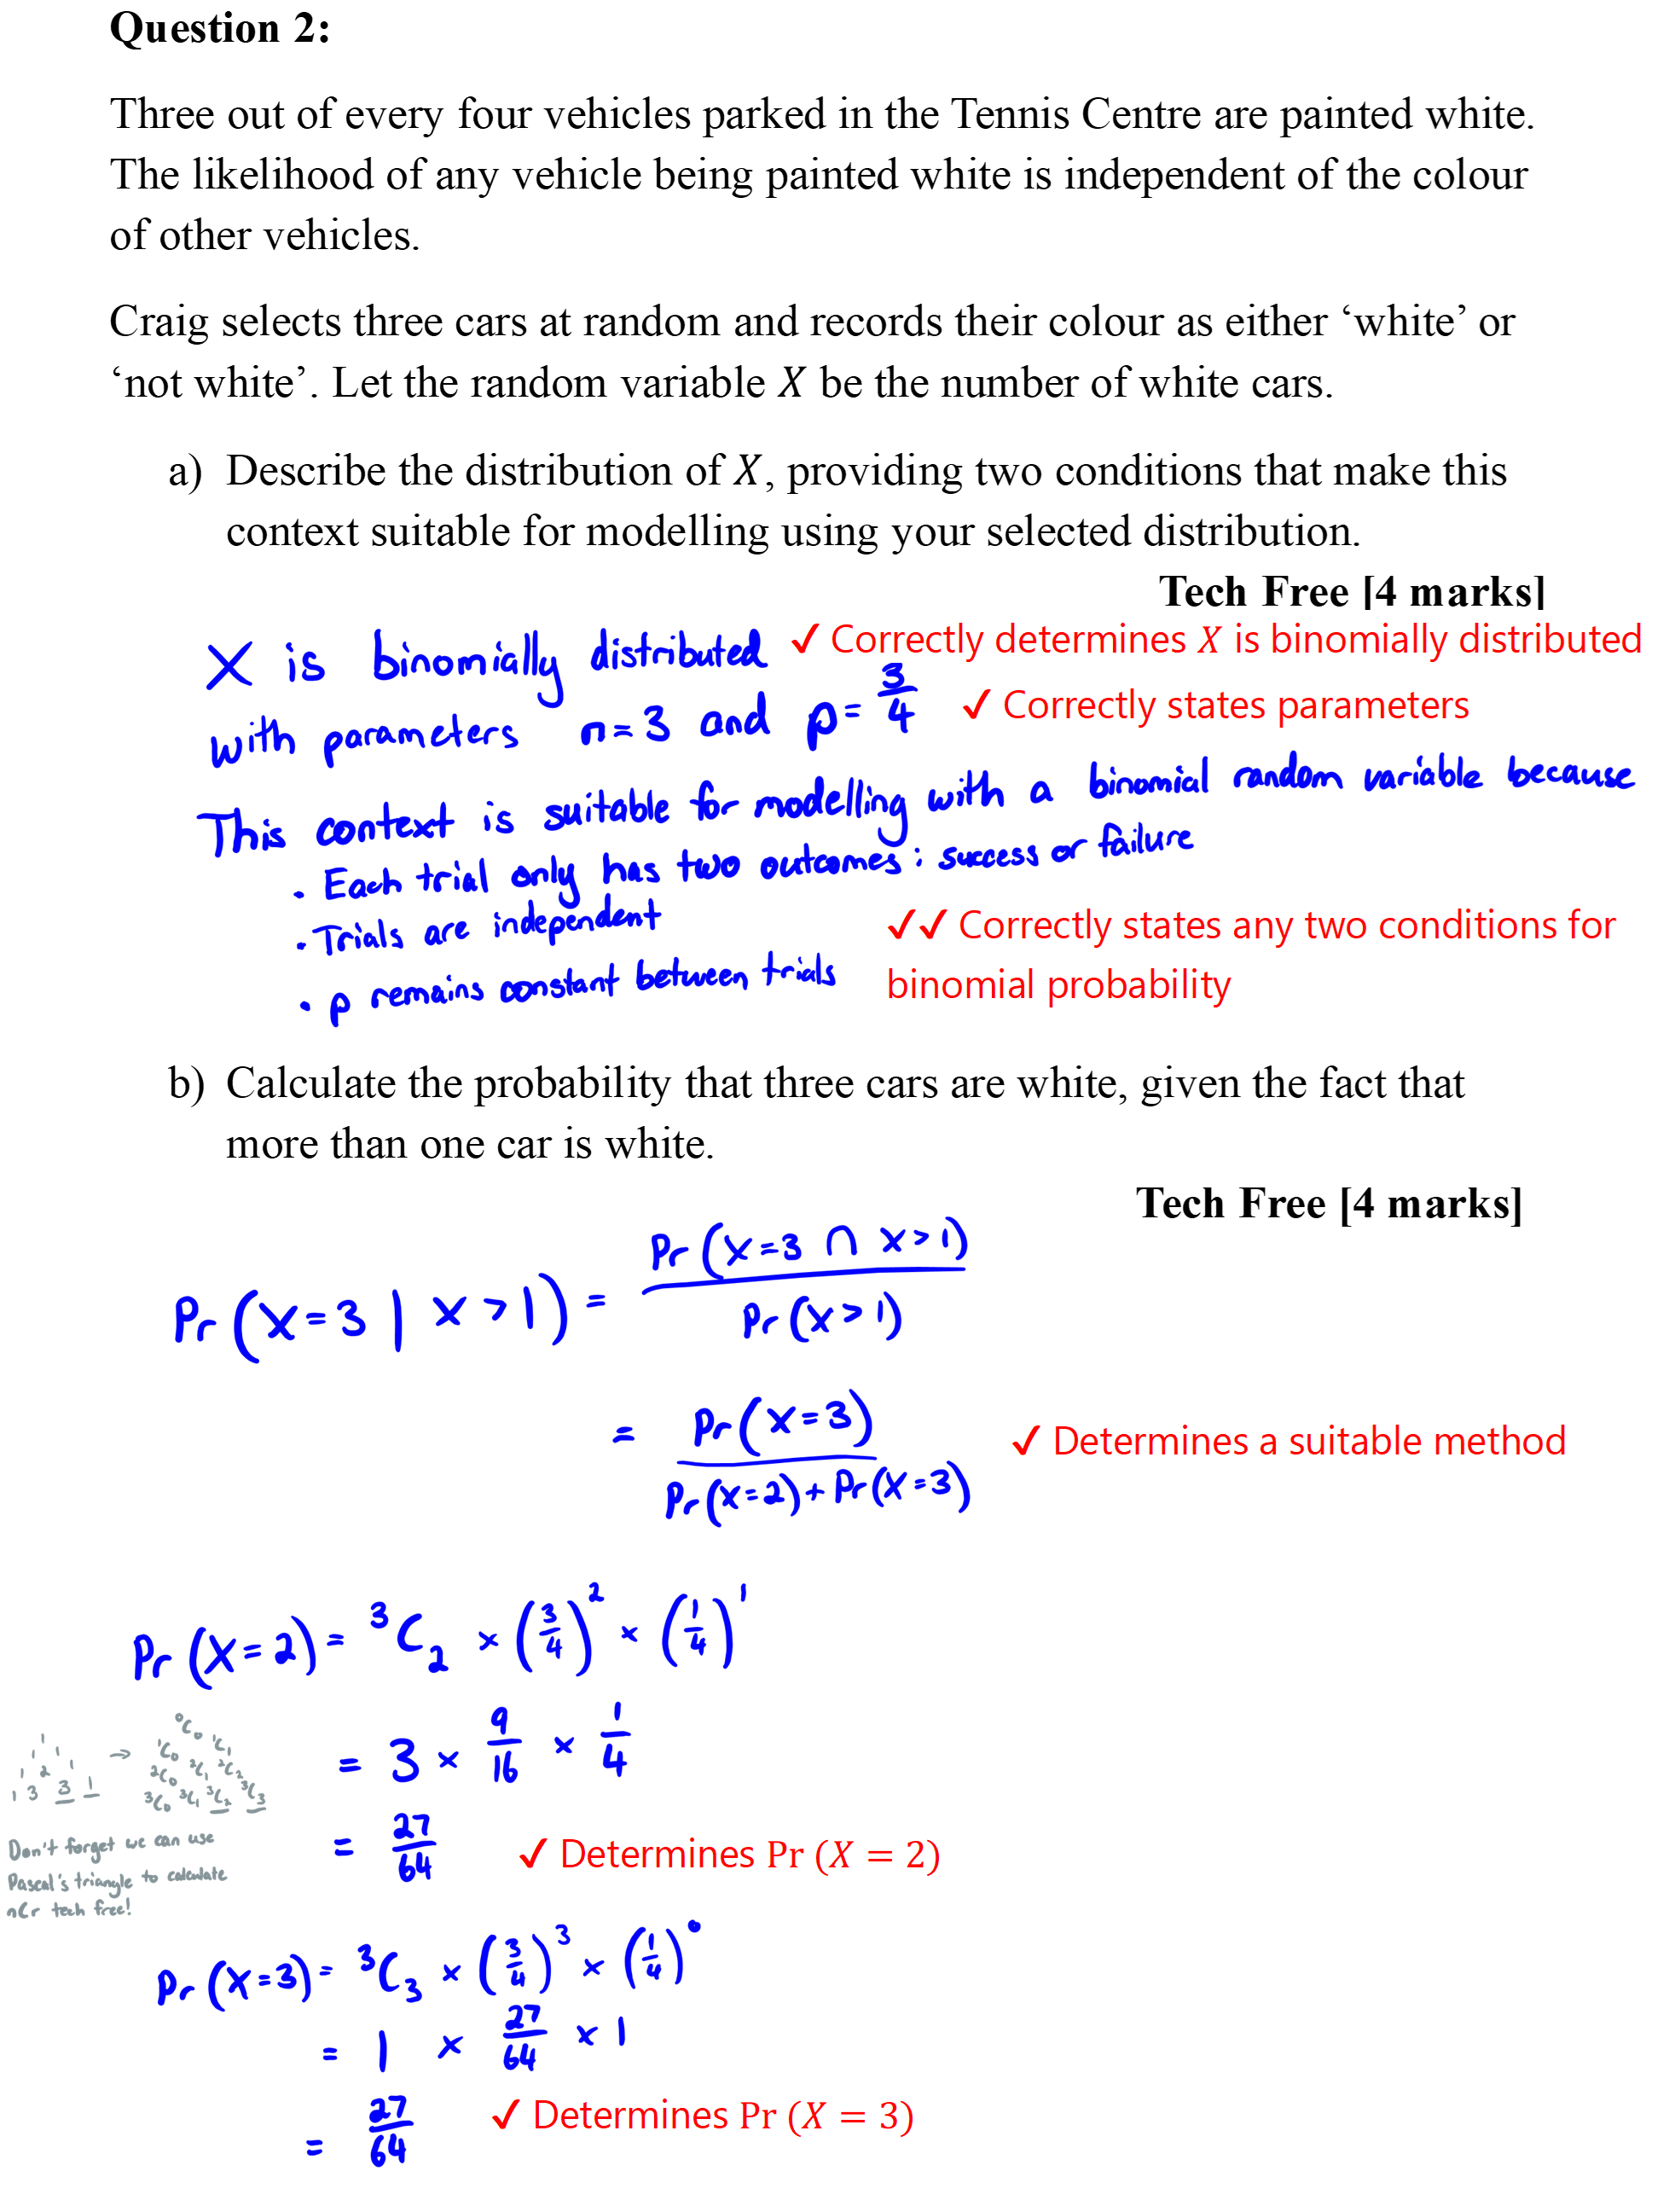 Question 2:
Three out of every four vehicles parked in the Tennis Centre are painted white.
The likelihood of any vehicle being painted white is independent of the colour
of other vehicles.
Craig selects three cars at random and records their colour as either ‘white’ or
‘not white’. Let the random variable X be the number of white cars.
a) Describe the distribution of X, providing two conditions that make this
context suitable for modelling using your selected distribution.
Tech Free [4 marks]
X is binomially distributed ✓ Correctly determines X is binomially distributed
with parameters n=3 and p=3/4 ✓ Correctly states parameters
This context is suitable for modelling with a binomial random variable because
• Each trial only has two outcomes: success or failure
• Trials are independent
✓✓ Correctly states any two conditions for
• p remains constant between trials
binomial probability
b) Calculate the probability that three cars are white, given the fact that
more than one car is white.
Tech Free [4 marks]
Pr(X=3 | X>1) = Pr(X=3 ∩ X>1) / Pr(X>1)
= Pr(X=3) / Pr(X=2)+Pr(X=3) ✓ Determines a suitable method
Pr(X=2) = ³C₂ × (3/4)² × (1/4)¹
= 3 × 9/16 × 1/4
= 27/64 ✓ Determines Pr (X = 2)
1 → ⁰C₀
1 1 ¹C₀ ¹C₁
1 2 1 ²C₀ ²C₁ ²C₂
1 3 3 1 ³C₀ ³C₁ ³C₂ ³C₃
Don't forget we can use
Pascal's triangle to calculate
nCr tech free!
Pr(X=3) = ³C₃ × (3/4)³ × (1/4)⁰
= 1 × 27/64 × 1
= 27/64 ✓ Determines Pr (X = 3)